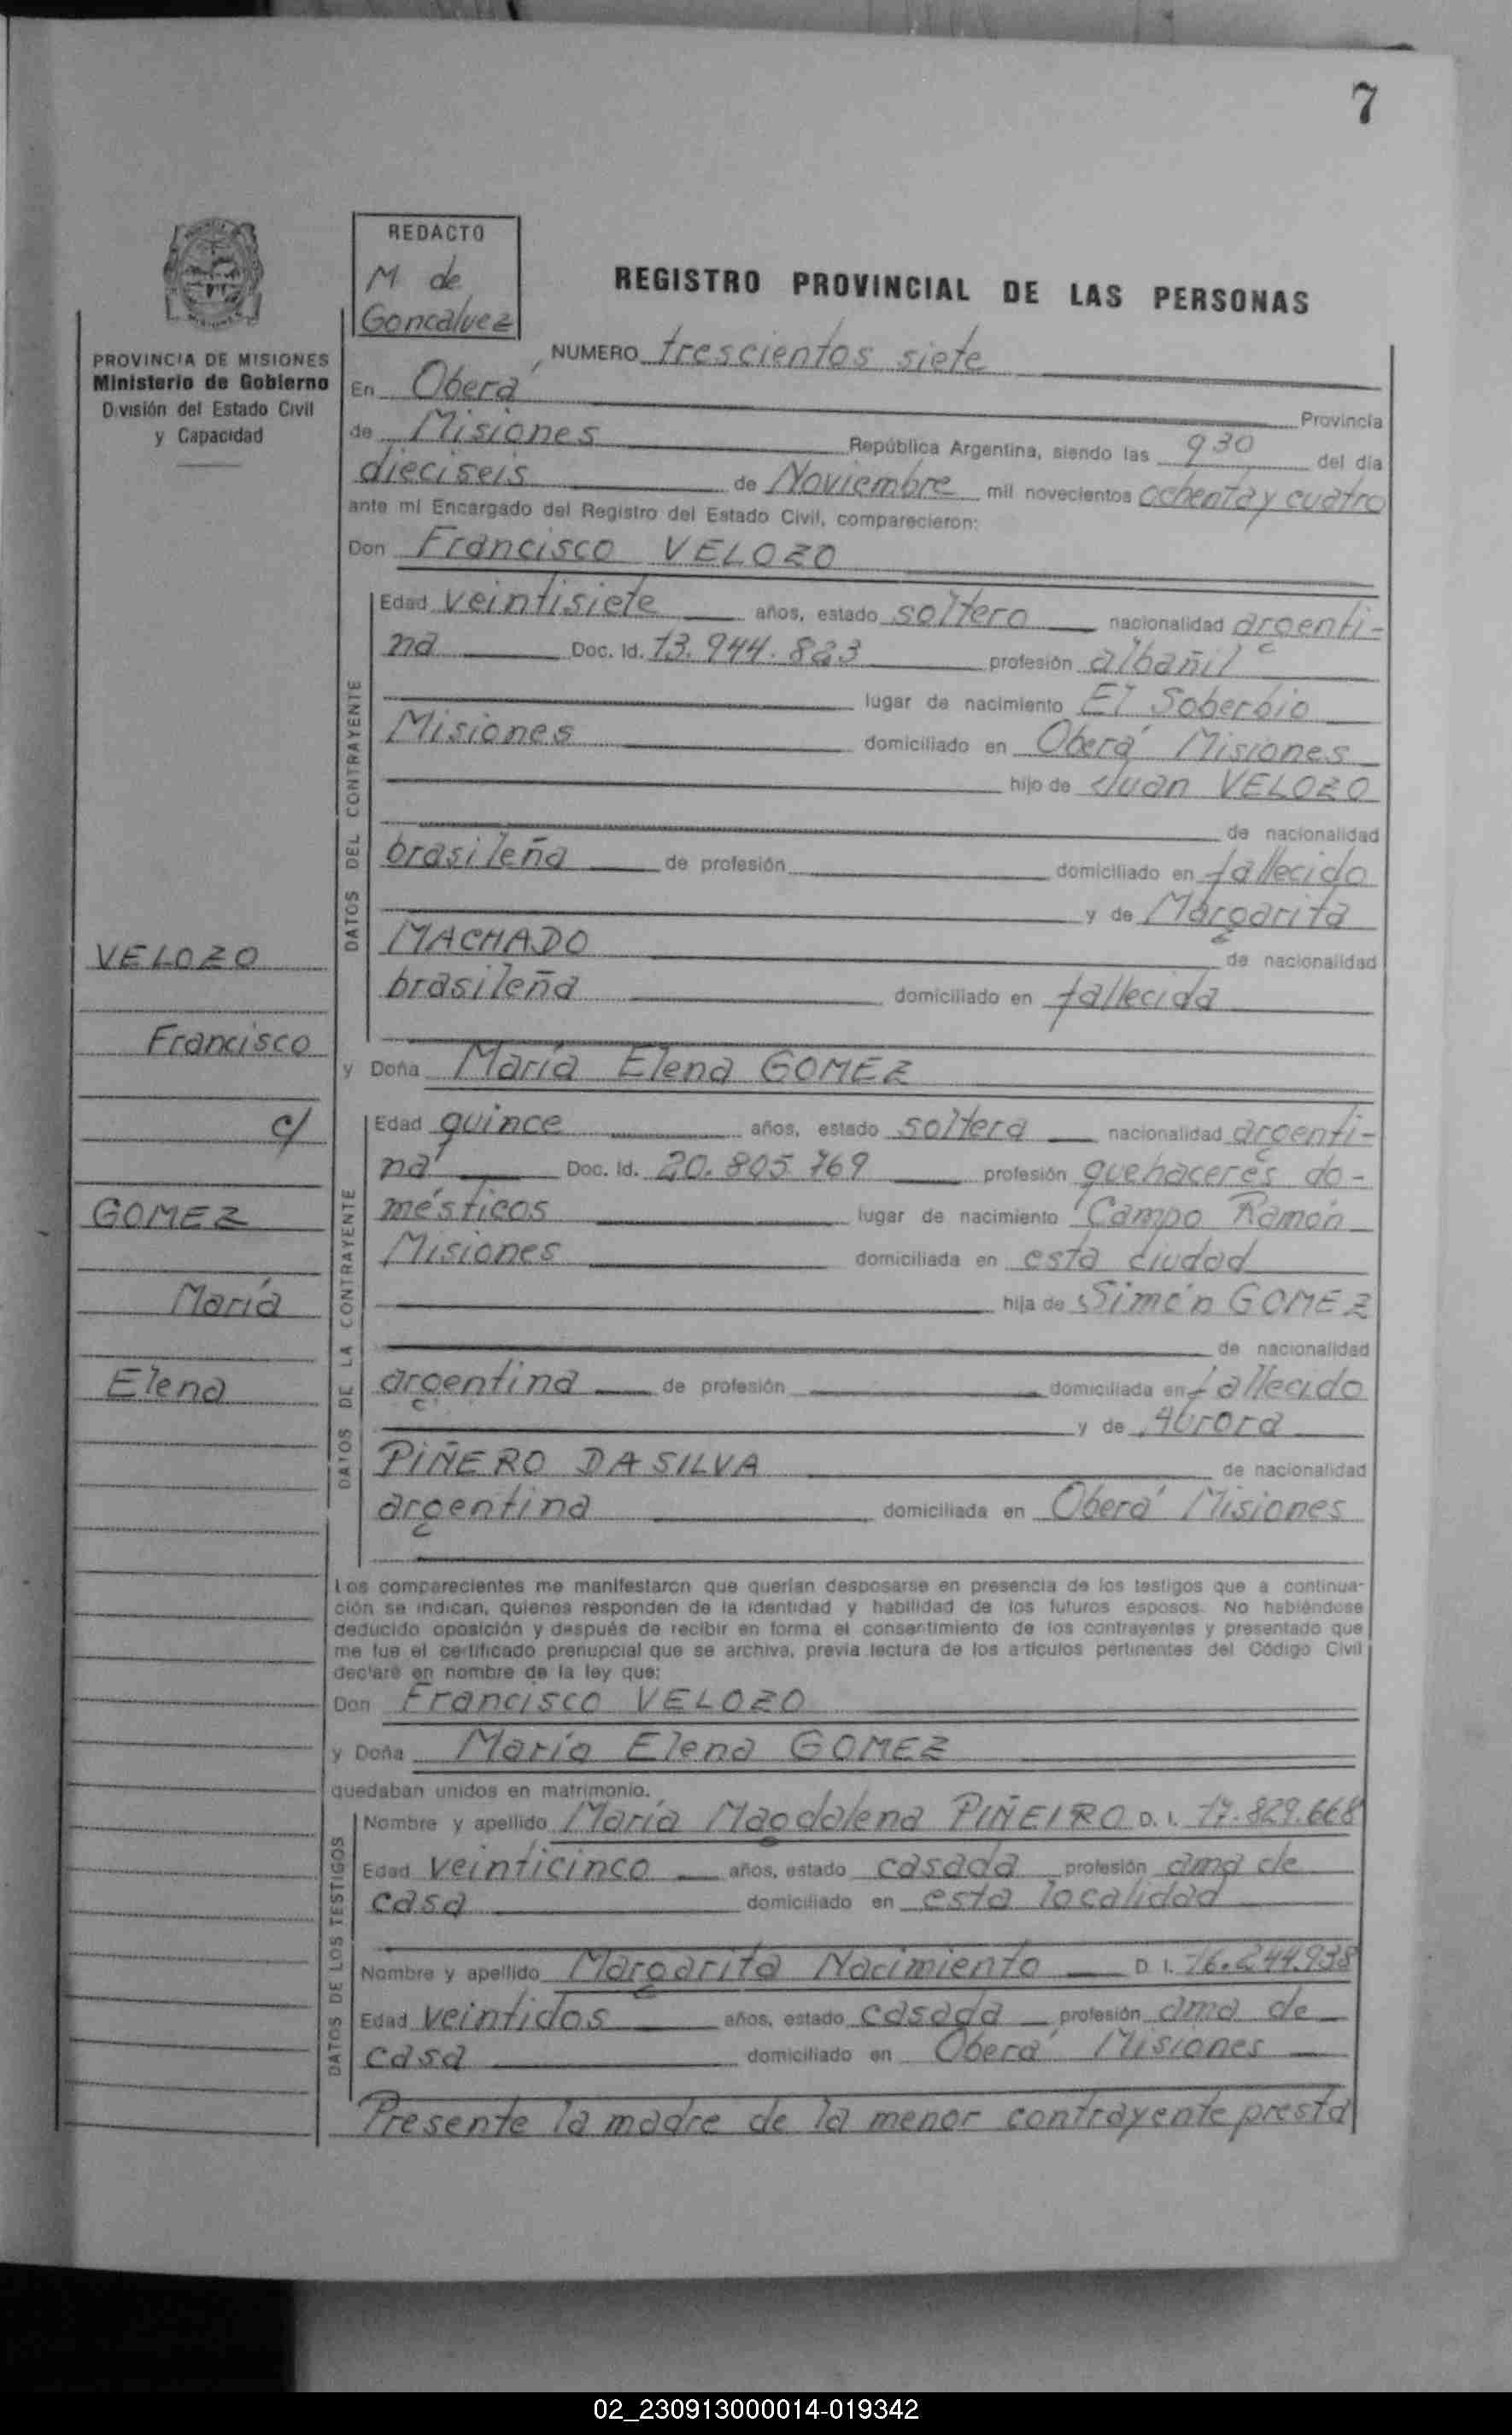 7
REDACTO
M de
Goncalvez
REGISTRO PROVINCIAL DE LAS PERSONAS
PROVINCIA DE MISIONES
Ministerio de Gobierno
División del Estado Civil
y Capacidad
NUMERO trescientos siete
En Oberá Provincia
de Misiones República Argentina, siendo las 930 del día
dieciseis de Noviembre mil novecientos ochenta y cuatro
ante mí Encargado del Registro del Estado Civil, comparecieron:
Don Francisco VELOZO
DATOS DEL CONTRAYENTE
Edad veintisiete años, estado soltero nacionalidad argenti-
na Doc. Id. 13.944.883 profesión albañil
lugar de nacimiento El Soberbio
Misiones domiciliado en Oberá Misiones
hijo de Juan VELOZO
de nacionalidad
brasileña de profesión domiciliado en fallecido
y de Margarita
MACHADO de nacionalidad
brasileña domiciliado en fallecida
y Doña María Elena GOMEZ
DATOS DE LA CONTRAYENTE
Edad quince años, estado soltera nacionalidad argenti-
na Doc. Id. 20.805.769 profesión quehaceres do-
mésticos lugar de nacimiento Campo Ramón
Misiones domiciliada en esta ciudad
hija de Simón GOMEZ
de nacionalidad
argentina de profesión domiciliada en fallecido
y de Aurora
PIÑERO DA SILVA de nacionalidad
argentina domiciliada en Oberá Misiones
VELOZO
Francisco
c/
GOMEZ
María
Elena
Los comparecientes me manifestaron que querían desposarse en presencia de los testigos que a continua-
ción se indican, quienes responden de la identidad y habilidad de los futuros esposos. No habiéndose
deducido oposición y después de recibir en forma el consentimiento de los contrayentes y presentado que
me fue el certificado prenupcial que se archiva, previa lectura de los artículos pertinentes del Código Civil
declaré en nombre de la ley que:
Don Francisco VELOZO
y Doña María Elena GOMEZ
quedaban unidos en matrimonio.
DATOS DE LOS TESTIGOS
Nombre y apellido María Magdalena PIÑEIRO D. I. 17.829.668
Edad veinticinco años, estado casada profesión ama de
casa domiciliado en esta localidad
Nombre y apellido Margarita Nacimiento D. I. 16.244.938
Edad veintidos años, estado casada profesión ama de
casa domiciliado en Oberá Misiones
Presente la madre de la menor contrayente presta
02_230913000014-019342